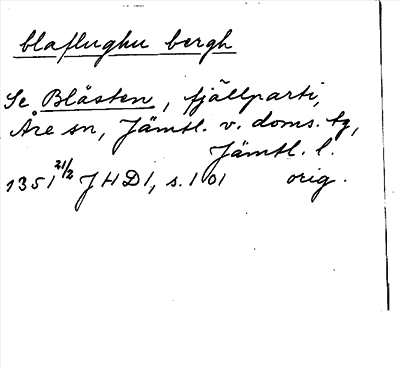 blaflughu bergh
Se Blåsten, fjällparti,
Åre sn, Jämtl. v. doms. tg,
Jämtl. l.
1351 21/2 JHD 1, s. 101 orig.